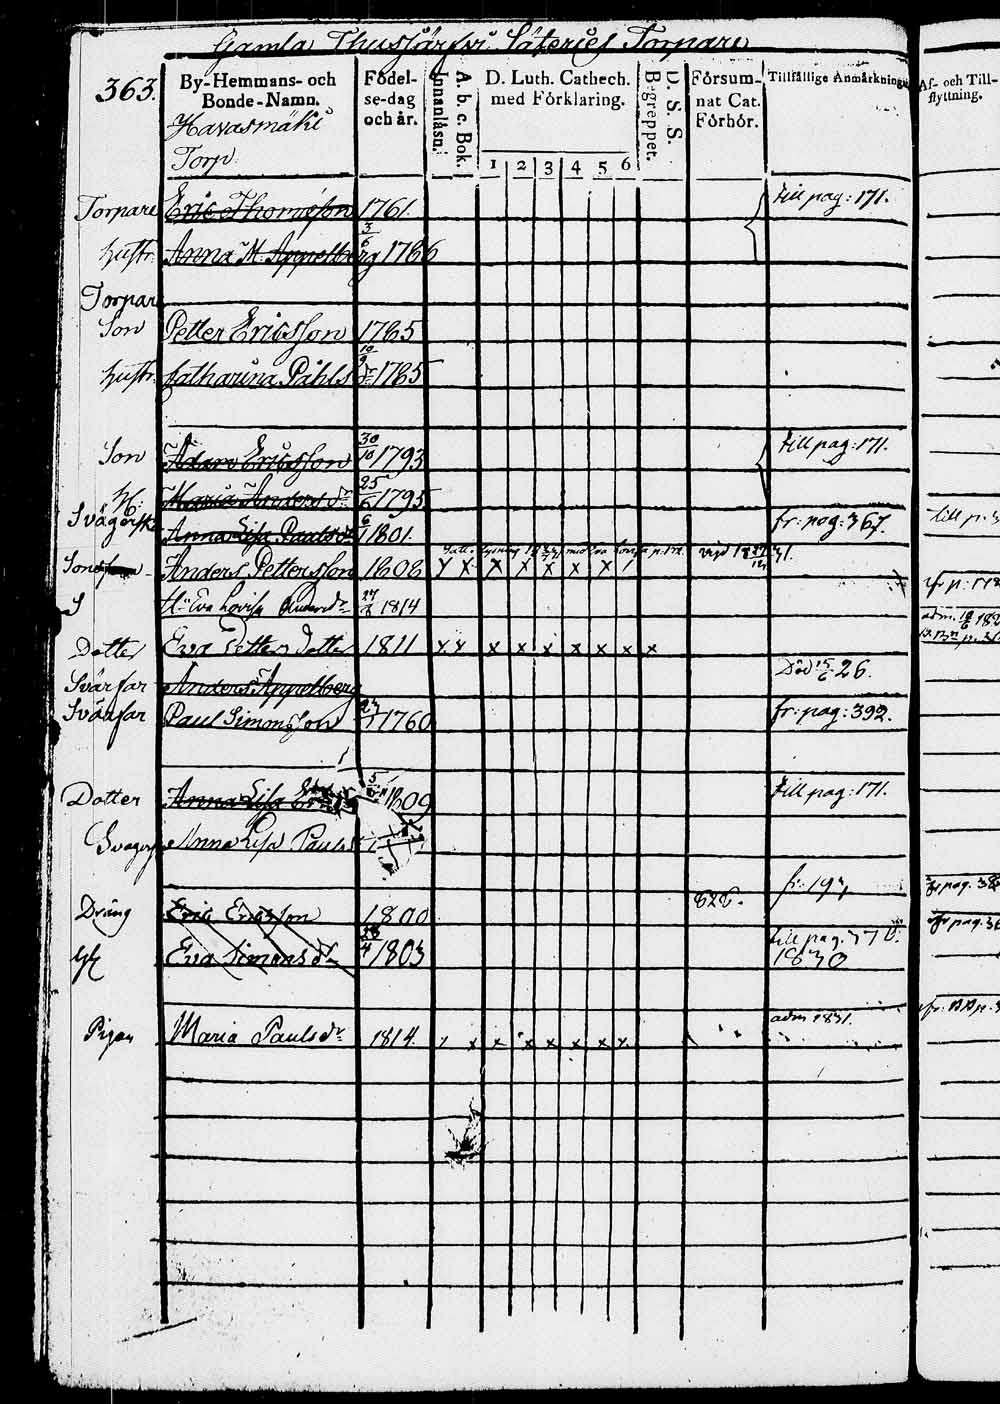 Gamla Thusjärfvi Säteries Torpare
363.
By-Hemmans- och Bonde-Namn.
Födel-se-dag och år.
Innanläsn.
A. b. c. Bok.
D. Luth. Cathech. med Förklaring.
1 2 3 4 5 6
D. S. S. Begreppet.
Försum-nat Cat. Förhör.
Tillfällige Anmärkningar
Af- och Till-flyttning.
Havasmäki
Torp
Torpare Eric Thomesson 1761. till pag: 171.
hustr: Anna M. Appelberg 3/6 1766
Torpare
Son Petter Ericsson 1785
hustr: Catharina Påhls dr 10/9 1785
Son Adam Ericsson 30/10 1793 till pag: 171.
H: Maria Anders dr 25/6 1795
Svägerska Anna Lisa Pauls dr 6/1 1801. fr: pag: 367. till p:
Son Anders Pettersson 1808 x x x x x x x
Hu Eva Lovisa dr 27/8 1814
Dotter Eva Petters Dotter 1811 x x x x x x x x x
Svärfar Anders Appelberg Död 15/6 26.
Svärfar Paul Simonsson 1760 fr: pag: 392.
Dotter Anna Lisa 1809 till pag: 171.
Svägerska Anna Lisa Pauls
fr: 193
828.
Dräng Eric Ericsson 1800
H Eva Simons dr 28/4 1803 till pag. 370. 1830
adm 1831.
Pigan Maria Pauls dr 1814. x x x x x x x x